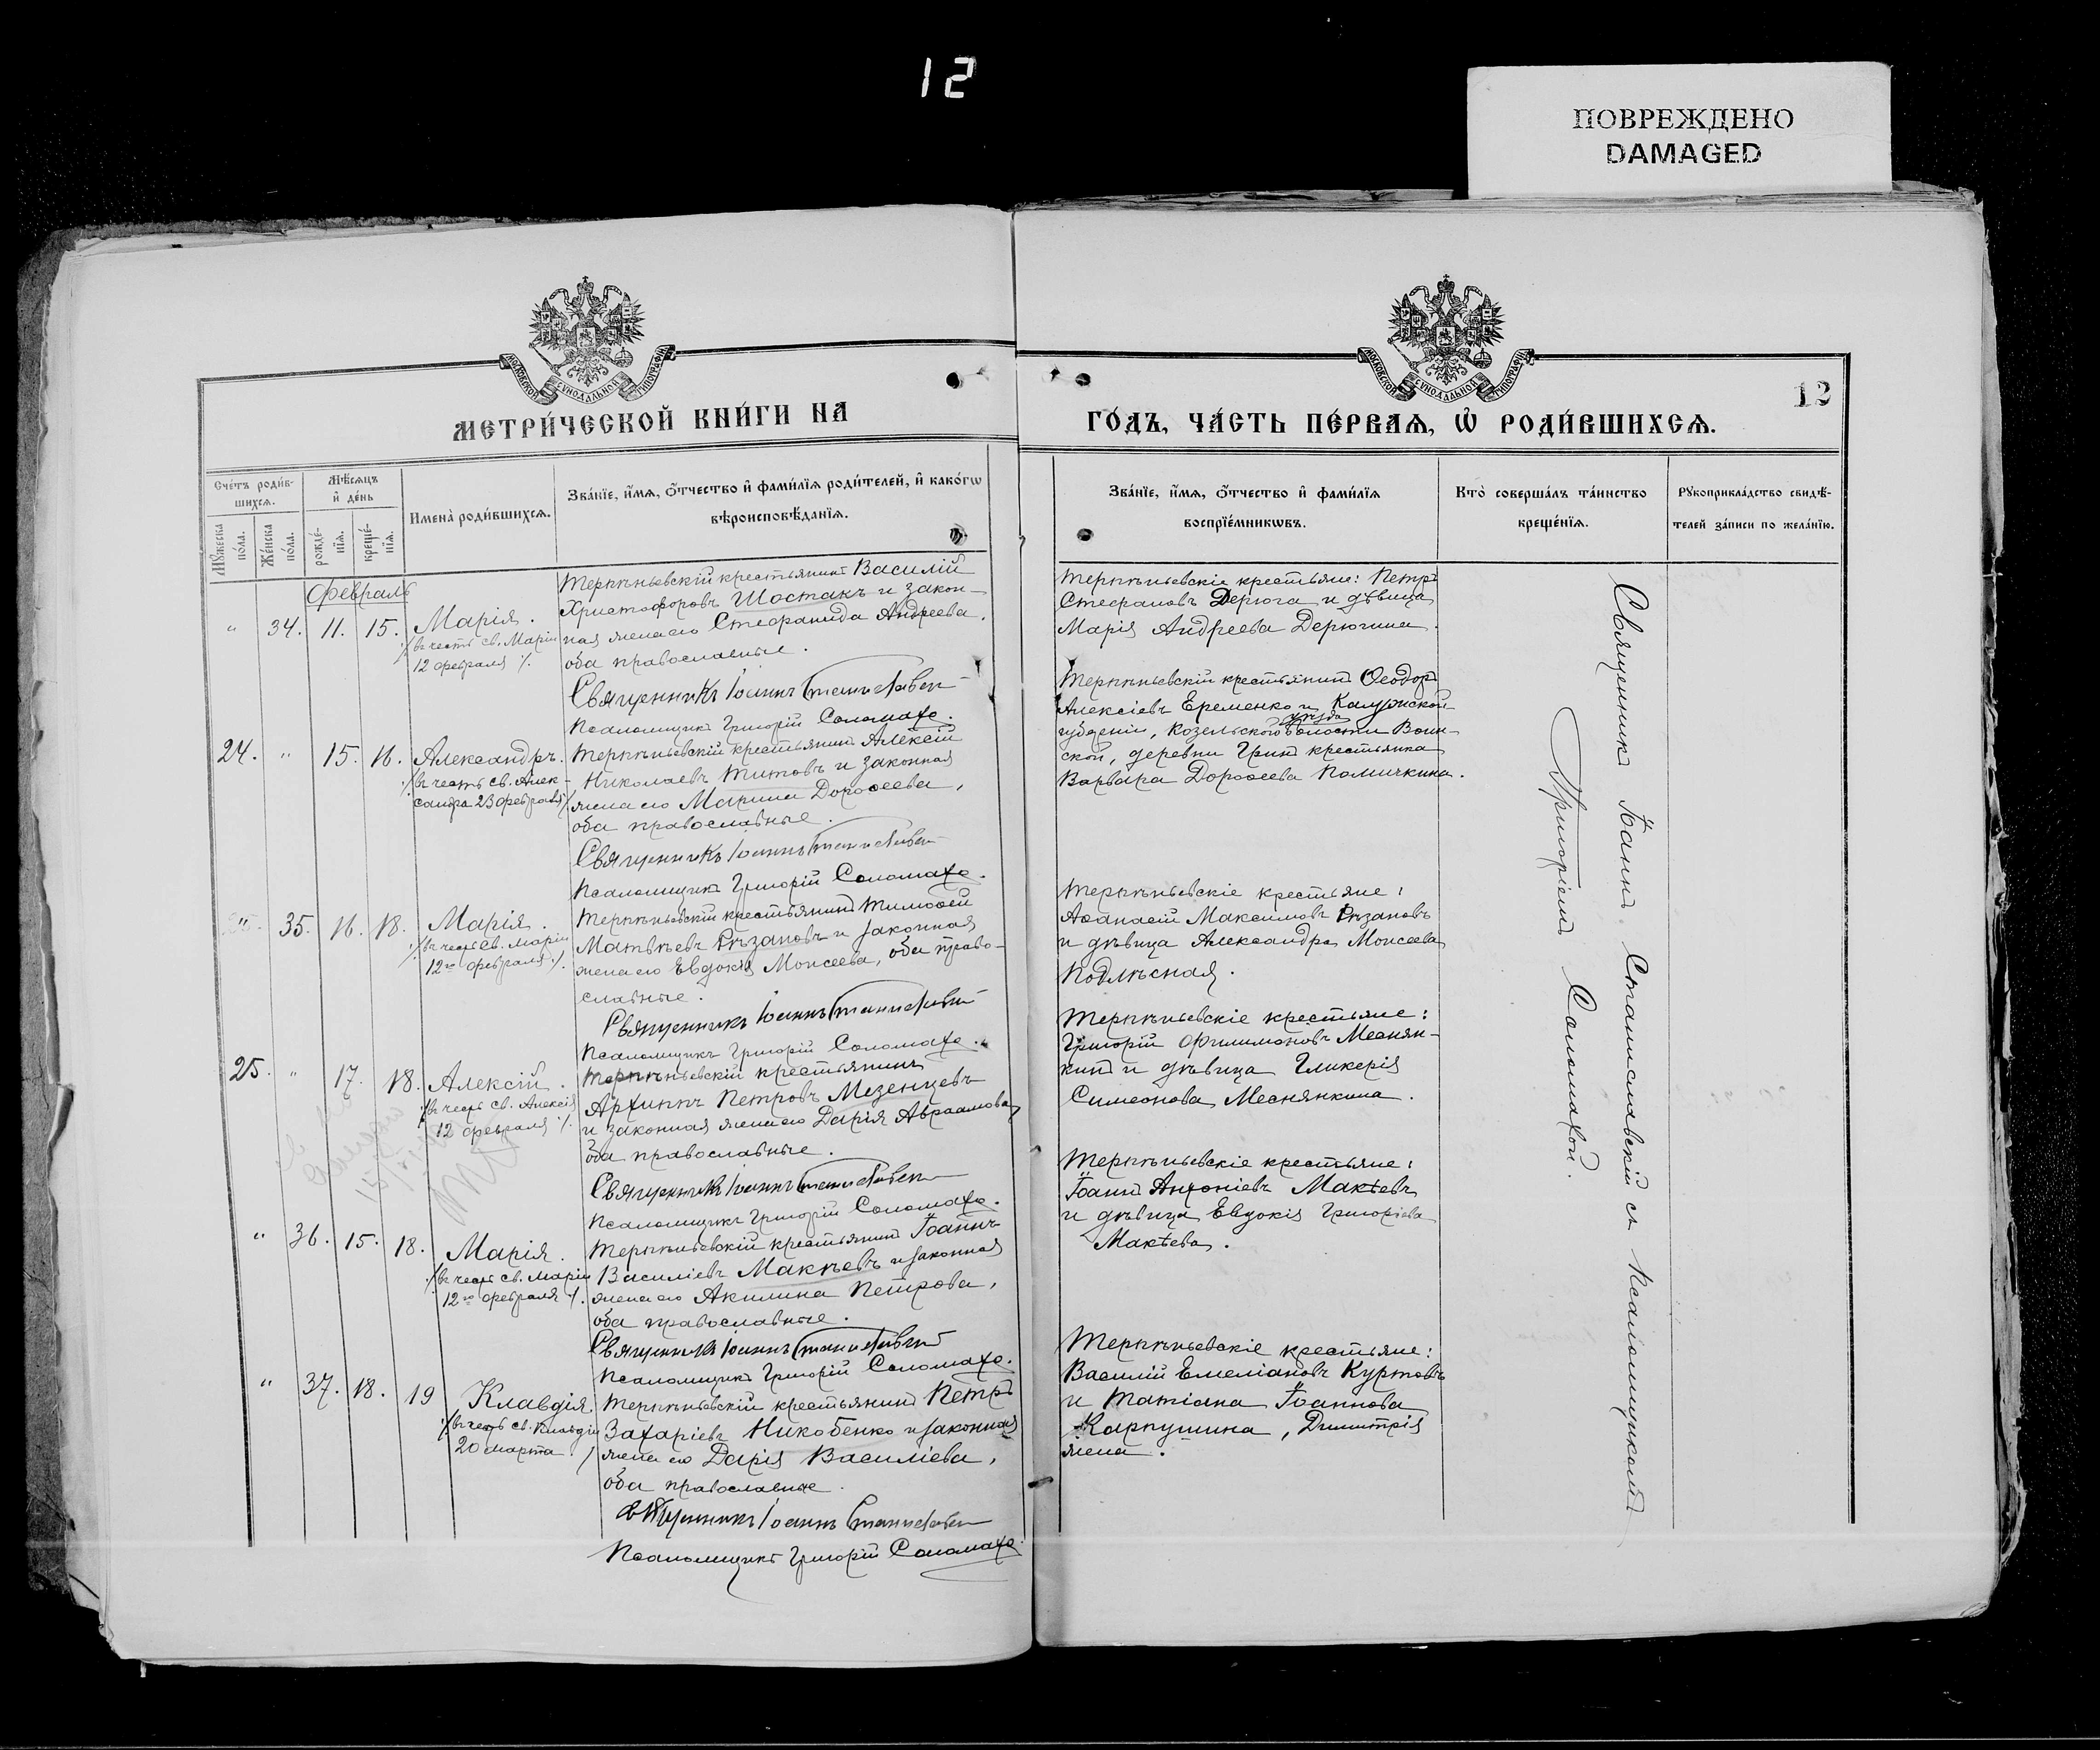 12
ПОВРЕЖДЕНО
DAMAGED
МОСКОВСКОЙ СѴНОДАЛЬНОЙ ТИПОГРАФІИ
МОСКОВСКОЙ СѴНОДАЛЬНОЙ ТИПОГРАФІИ
12
МЕТРИ́ЧЕСКОЙ КНИ́ГИ НА
ГО́ДЪ, ЧА́СТЬ ПЕ́РВАѦ, Ѡ҆ РОДИ́ВШИХСѦ.
Сче́тъ роди́в-
шихсѧ.
Мѣ́сѧцъ
и҆ де́нь
Имена̀ роди́вшихсѧ.
Зва́нїе, и҆́мѧ, о҆́тчество и҆ фами́лїѧ роди́телей, и҆ како́гѡ
вѣроисповѣ́данїѧ.
Мꙋ́жеска
по́ла.
Же́нска
по́ла.
рожде́-
нїѧ.
креще́-
нїѧ.
Зва́нїе, и҆́мѧ, о҆́тчество и҆ фами́лїѧ
воспрїе́мникѡвъ.
Кто̀ соверша́лъ та́инство
креще́нїѧ.
Рꙋкоприкла́дство свидѣ́-
телей за́писи по жела́нїю.
Февраль
" 34. 11. 15. Марія.
/: въ честь св. Маріи
12 февраля :/.
Терпѣньевскій крестьянинъ Василій
Христофоровъ Шостакъ и закон-
ная жена его Стефанида Андреева,
оба православные.
Священникъ Іоаннъ Станиславскій
Псаломщикъ Григорій Соломаха.
Терпѣньевскіе крестьяне: Петръ
Стефановъ Дерюга и дѣвица
Марія Андреева Дерюгина.
24. " 15. 16. Александръ.
/: въ честь св. Алек-
сандра 23 февраля :/
Терпѣньевскій крестьянинъ Алексій
Николаевъ Титовъ и законная
жена его Марина Дороѳеева,
оба православные.
Священникъ Іоаннъ Станиславскій
Псаломщикъ Григорій Соломаха.
Терпѣньевскій крестьянинъ Ѳеодоръ
Алексіевъ Еременко и Калужской
губерніи, Козельского уѣзда волости Воин-
ской, деревни крестьянка
Варвара Дороѳеева Помичкина.
" 35. 16. 18. Марія.
/: въ честь св. Маріи
12го февраля :/.
Терпѣньевскій крестьянинъ Тимоѳей
Матвѣевъ Рѣзановъ и законная
жена его Евдокія Моисеева, оба право-
славные.
Священникъ Іоаннъ Станиславскій
Псаломщикъ Григорій Соломаха.
Терпѣньевскіе крестьяне:
Аѳанасій Максимовъ Рѣзановъ
и дѣвица Александра Моисеева
Подлѣсная.
25. " 17. 18. Алексій.
/: въ честь св. Алексія
12 февраля :/.
Терпѣньевскій крестьянинъ
Архиппъ Петровъ Мезенцевъ
и законная жена его Дарія Авраамова,
оба православные.
Священникъ Іоаннъ Станиславскій
Псаломщикъ Григорій Соломаха.
Терпѣньевскіе крестьяне:
Григорій Филимоновъ Меснян-
кинъ и дѣвица Гликерія
Симеонова Меснянкина.
" 36. 15. 18. Марія.
/: въ честь св. Маріи
12го февраля :/.
Терпѣньевскій крестьянинъ Іоаннъ
Василіевъ Макѣевъ и законная
жена его Акилина Петрова,
оба православные.
Священникъ Іоаннъ Станиславскій
Псаломщикъ Григорій Соломаха.
Терпѣньевскіе крестьяне:
Іоаннъ Антоніевъ Макѣевъ
и дѣвица Евдокія Григоріева
Макѣева.
" 37. 18. 19 Клавдія.
/: въ честь св. Клавдіи
20 марта :/
Терпѣньевскій крестьянинъ Петръ
Захаріевъ Никобенко и законная
жена его Дарія Василіева,
оба православные.
Священникъ Іоаннъ Станиславскій
Псаломщикъ Григорій Соломаха.
Терпѣньевскіе крестьяне:
Василій Емеліановъ Куртовъ
и Татіана Іоаннова
Карпушина, Димитрія
жена.
Священникъ Іоаннъ Станиславскій съ псаломщикомъ
Григоріемъ Соломахой.